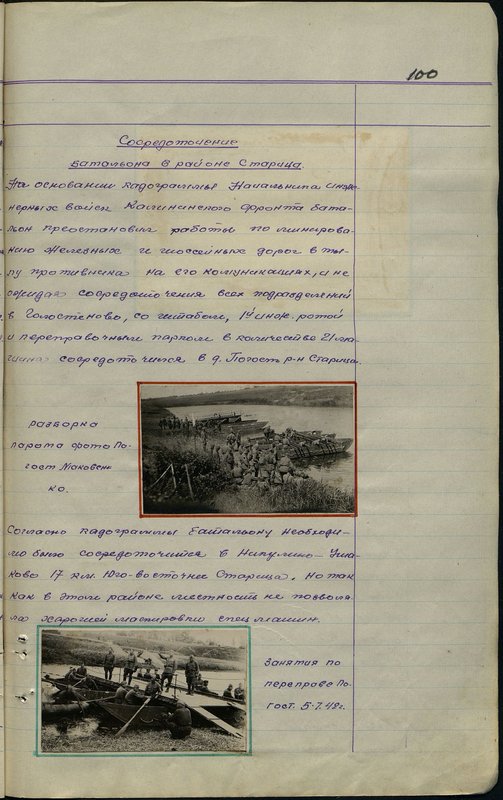 100
Сосредоточение
Батальона в районе Старица.
На основании радограммы Начальника инже-
нерных войск Калининского фронта бата-
льон приостановил работы по минирова-
нию железных и шоссейных дорог в ты-
лу противника на его комуникациях, и не
ожидая сосредоточения всех подразделений
в Голостеново, со штабом, 1й инж. ротой
и переправочным парком в количестве 21 ма-
шина сосредоточился в д. Погост р-н Старица.
разборка
парома фото По-
гост Маковень
ко.
Согласно радограммы батальону необходи-
мо было сосредоточится в Никулино- Уша-
ково 17 км. Юго-восточнее Старица. Но так
как в этом районе местность не позволя-
ла харошей маскировки спец машин.
Занятия по
переправе По-
гост. 5.7.42г.